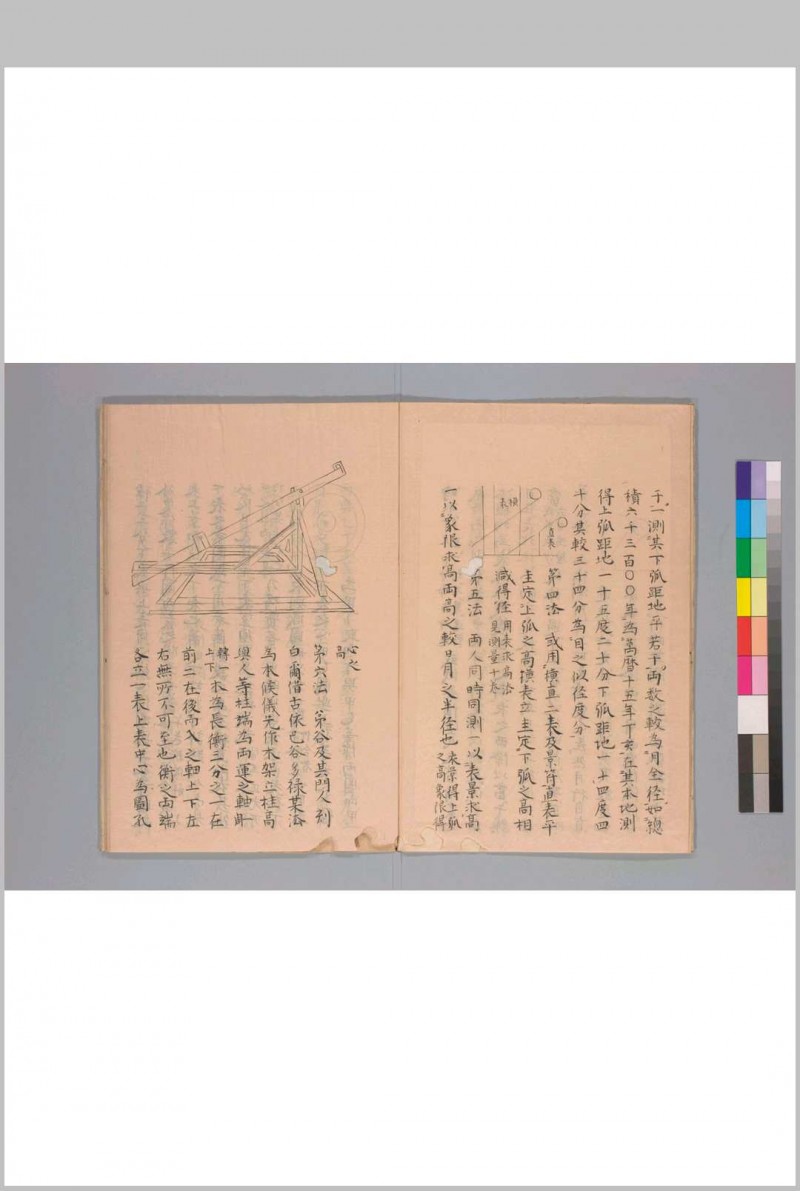 干一測其下弧距地平若干兩数之較為月全径如總
積六千三百〇〇年為萬暦十五年丁亥丘其本地測
得上弧距地一十五度二十分下弧距地一十四度四
十分其較三十四分為目之似径度分
直表
横表
第四法 或用横直二表及景符直表平
圭定上弧之高横表立圭定下弧之高相
減得径用表求高法見測量十卷
第五法 两人同時同測一以表景求高
一以象限求高両高之較日月之半径也表景得上弧之高象限得
心之高
第六法 第谷及其門人刻
白爾借古依巴谷多禄某法
為本候儀先作木架立柱高
與人等柱端為両運之軸能一
轉上下一本為長衡三分之一在
前二在後而入之軸上下左
右無所不可至也衡之両端
各立一表上表中心為圓孔